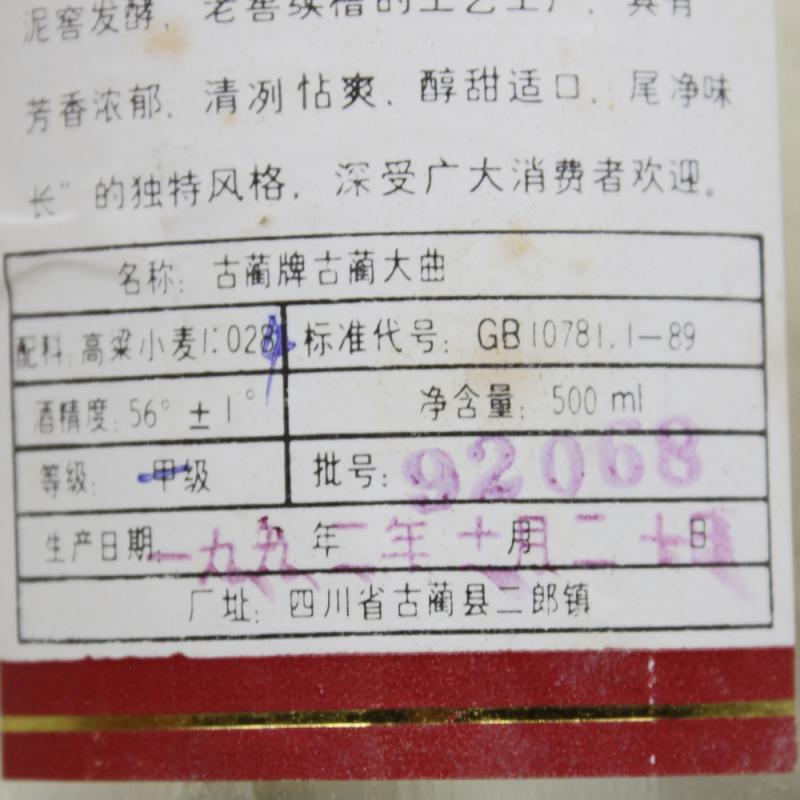 泥窖发酵、老窖续糟的工艺生产，具有
芳香浓郁、清冽怗爽、醇甜适口、尾净味
长”的独特风格，深受广大消费者欢迎。
名称：古蔺牌古蔺大曲
配料：高粱小麦1:028
标准代号：GB10781.1—89
酒精度：56°±1°
净含量：500 ml
等级：甲级
批号：92068
生产日期 年 月 日
一九九二年十一月二十日
厂址：四川省古蔺县二郎镇